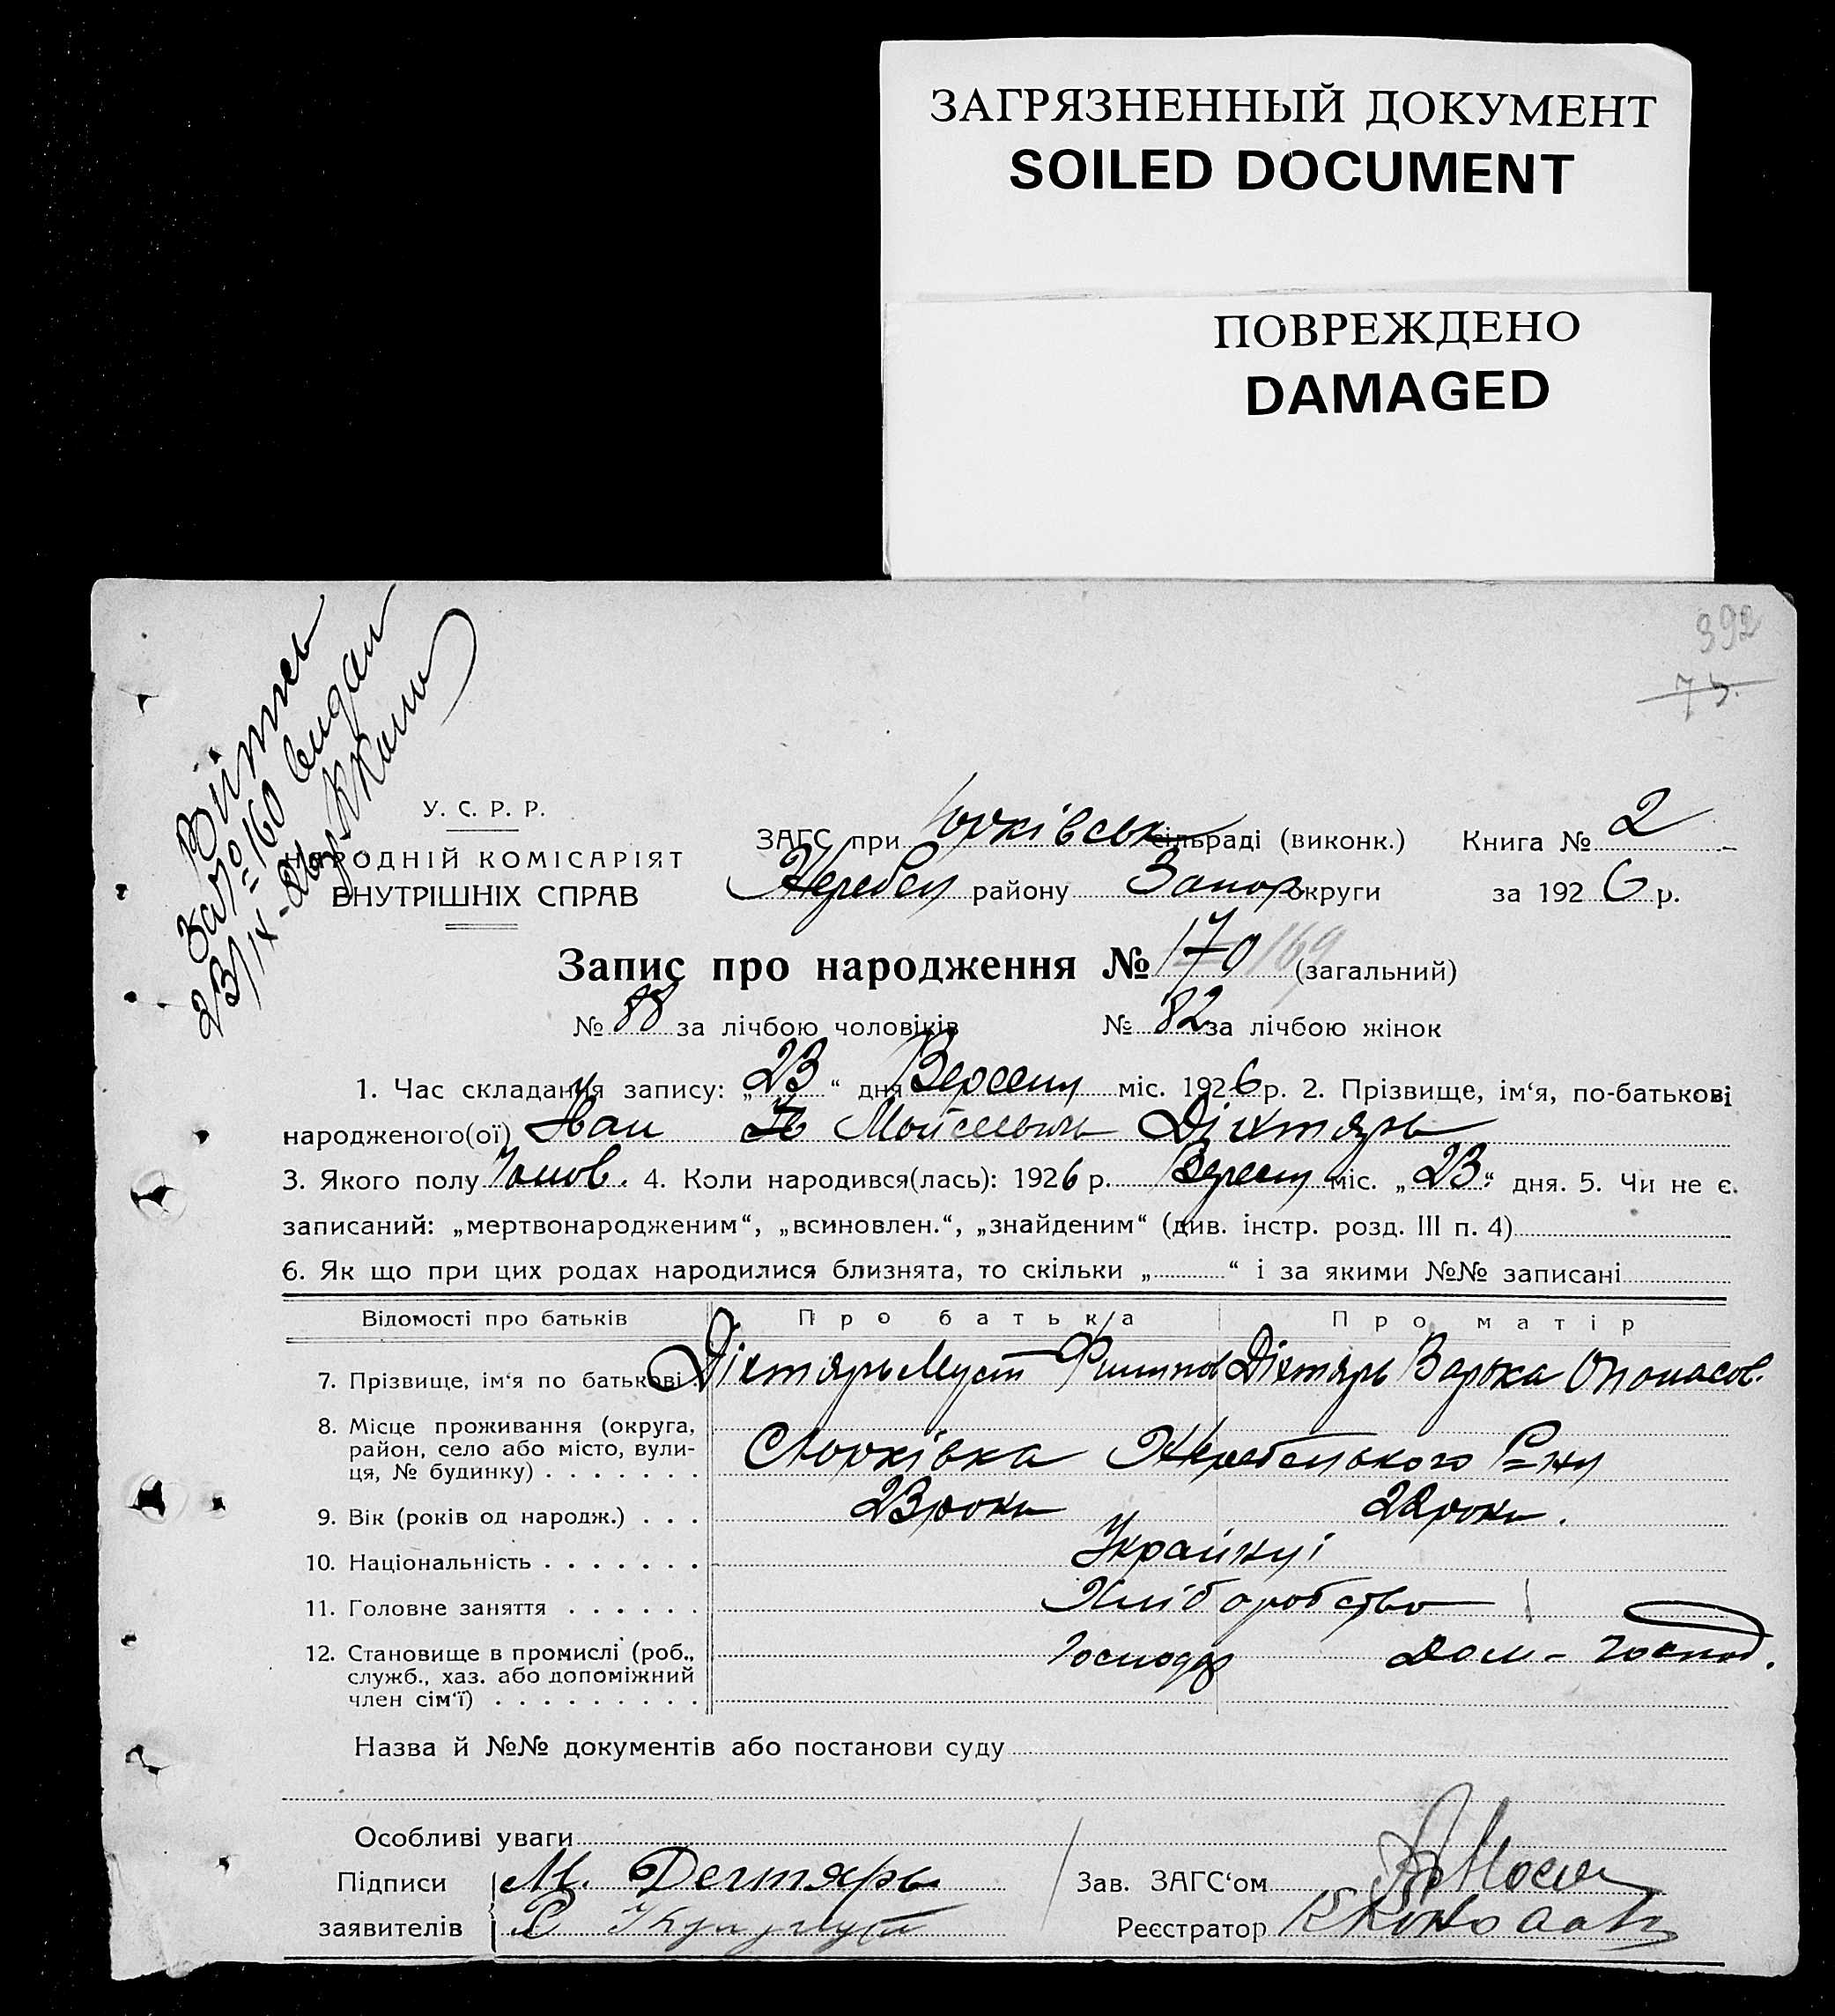 ЗАГРЯЗНЕННЫЙ ДОКУМЕНТ
SOILED DOCUMENT
ПОВРЕЖДЕНО
DAMAGED
392
73.
Витяг
за № 160 видан
23/IX-26р.
У. С. Р. Р.
НАРОДНІЙ КОМІСАРІЯТ
ВНУТРІШНІХ СПРАВ
ЗАГС при Юрківськ сільраді (виконк.) Книга № 2
Жеребец району Запор округи за 1926 р.
Запис про народження № 170 169 (загальний)
№ 88 за лічбою чоловіків № 82 за лічбою жінок
1. Час складання запису: „23“ дня Вересня міс. 1926 р. 2. Прізвище, ім‘я, по-батькові
народженого(ої) Іван Мойсеевич Діхтярь
3. Якого полу Чолов. 4. Коли народився(лась): 1926 р. Вересня міс. „23“ дня. 5. Чи не є.
записаний: „мертвонародженим“, „всиновлен.“, „знайденим“ (див. інстр. розд. III п. 4)
6. Як що при цих родах народилися близнята, то скільки „ “ і за якими №№ записані
Відомості про батьків Про батька Про матір
7. Прізвище, ім‘я по батькові Діхтярь Мусій Филипов Діхтярь Варька Опонасов.
8. Місце проживання (округа,
район, село або місто, вули-
ця, № будинку) . . . . . . . С Юрківка Жеребецького Р-ну
9. Вік (років од народж.) . . . 23 роки 22 роки.
10. Національність . . . . . . . Українці
11. Головне заняття . . . . . . Хліборобство
12. Становище в промислі (роб., Господар Дом-господ.
служб., хаз. або допоміжний
член сім‘ї) . . . . . . . . .
Назва й №№ документів або постанови суду
Особливі уваги
Підписи М. Дегтярь Зав. ЗАГС‘ом
заявителів Реєстратор